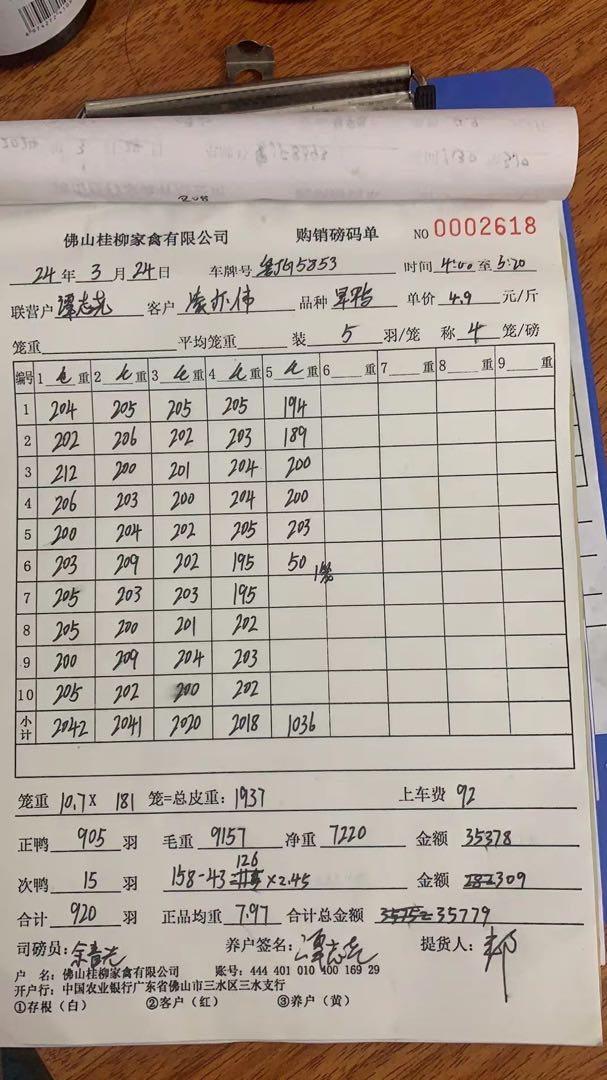 佛山桂柳家禽有限公司 购销磅码单 NO 0002618
24年3月24日 车牌号 5853 时间 4:00 至 5:20
联营户 谭志尧 客户 伟 品种 旱鸭 单价 4.9 元/斤
笼重 平均笼重 装 5 羽/笼 称 4 笼/磅
编号 1 毛重 2 毛重 3 毛重 4 毛重 5 毛重 6 重 7 重 8 重 9 重
1 204 205 205 205 194
2 202 206 202 203 189
3 212 200 201 204 200
4 206 203 200 204 200
5 200 204 202 205 203
6 203 209 202 195 50 1笼
7 205 203 203 195
8 205 200 201 202
9 200 209 204 203
10 205 202 200 202
小计 2042 2041 2020 2018 1036
笼重 10.7 X 181 笼=总皮重: 1937 上车费 92
正鸭 905 羽 毛重 9157 净重 7220 金额 35378
次鸭 15 羽 158-43= 126 ×2.45 金额 309
合计 920 羽 正品均重 7.97 合计总金额 35779
司磅员: 养户签名: 谭志尧 提货人:
户 名: 佛山桂柳家禽有限公司 账号: 444 401 010 400 169 29
开户行: 中国农业银行广东省佛山市三水区三水支行
①存根(白) ②客户(红) ③养户(黄)